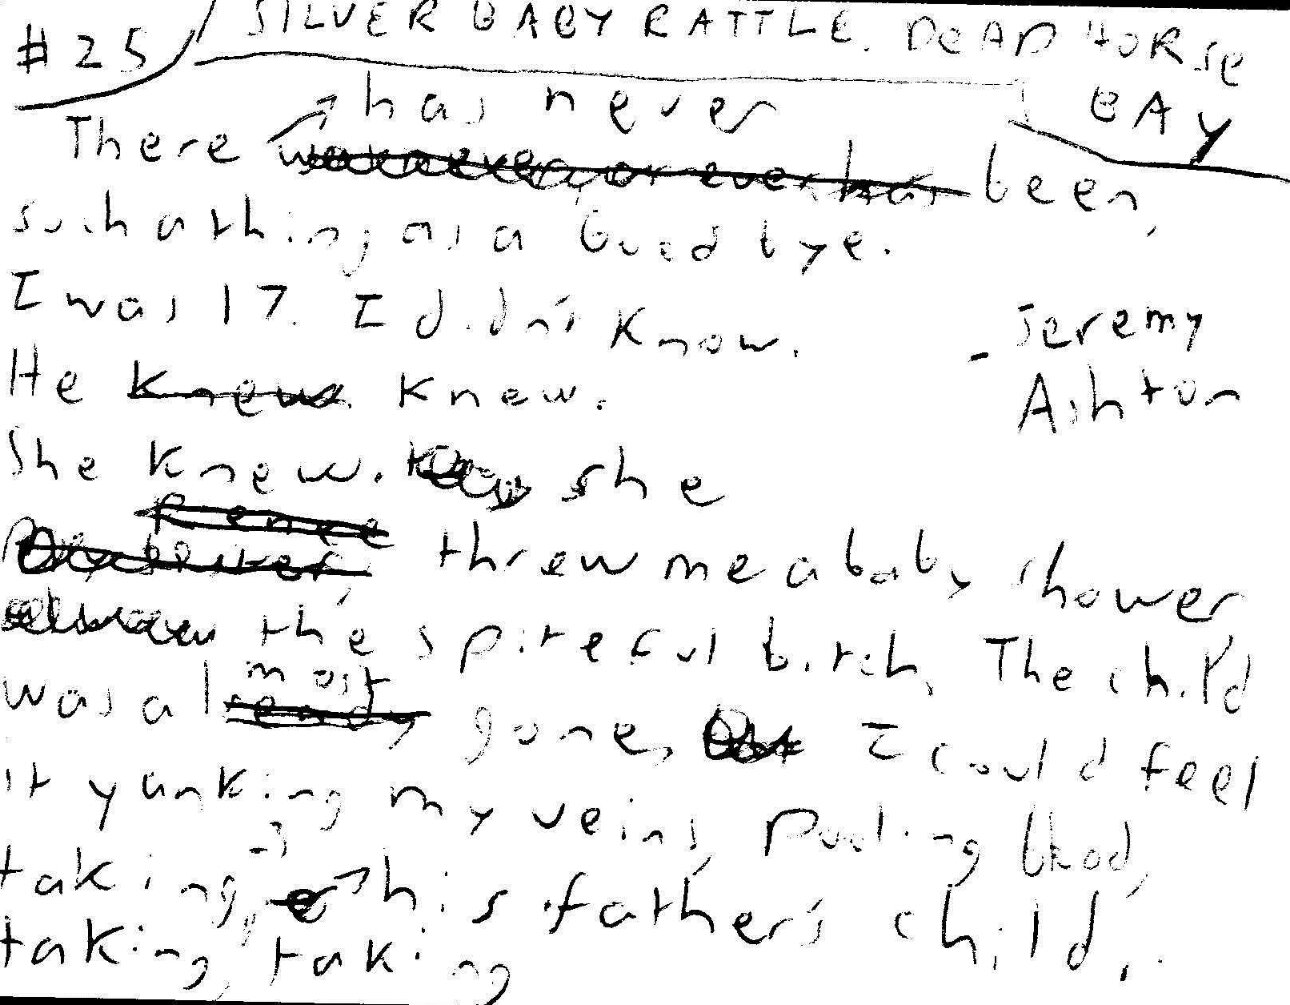 #25 SILVER BABY RATTLE. DEAD HORSE
BAY
has never
There been,
such a thing as a Goodbye.
I was 17. I didn't know.
- Jeremy
Ashton
He knew knew.
She knew. she
Renee
threw me a baby shower
the spiteful bitch, The child
most
was already gone, I could feel
it yanking my veins, pooling blood,
taking, → his father's child,.
taking, taking